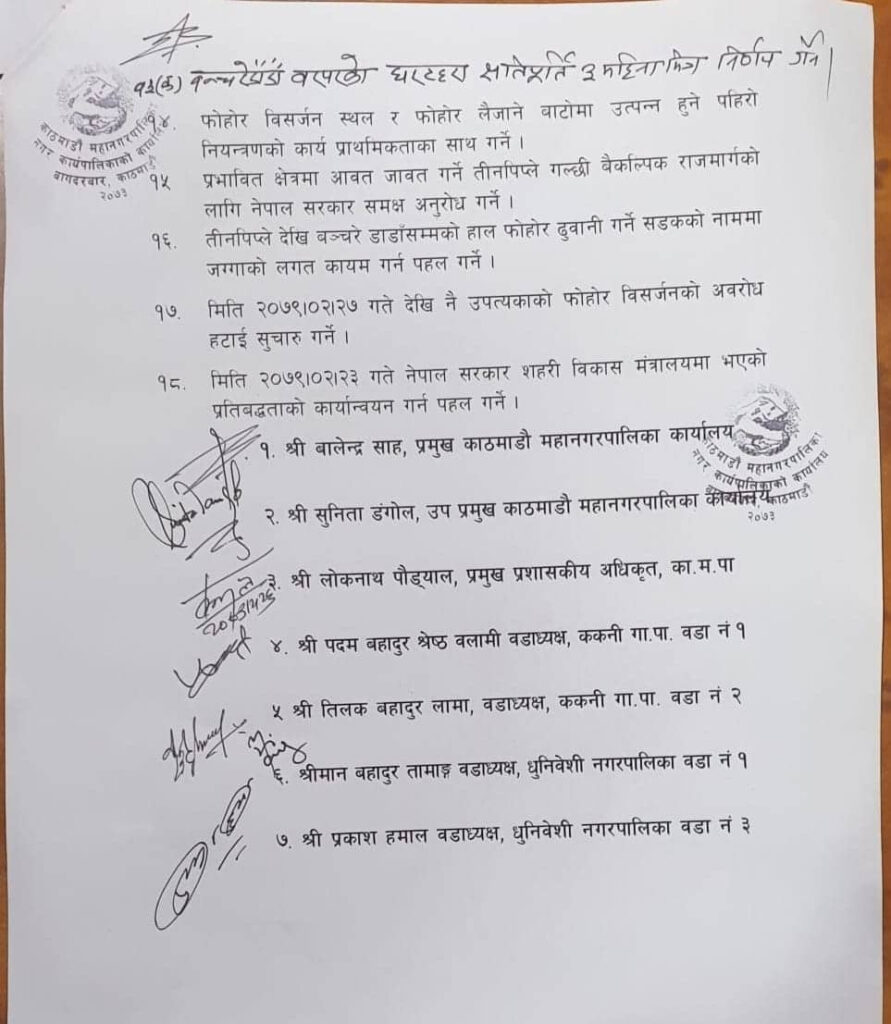 १३(क) बन्चरेडाँडा वरपरको घरटहरा क्षतिपूर्ति ३ महिना भित्र निर्णय गर्ने।
१४. फोहोर विसर्जन स्थल र फोहोर लैजाने बाटोमा उत्पन्न हुने पहिरो
नियन्त्रणको कार्य प्राथमिकताका साथ गर्ने ।
१५ प्रभावित क्षेत्रमा आवत जावत गर्ने तीनपिप्ले गल्छी बैकल्पिक राजमार्गको
लागि नेपाल सरकार समक्ष अनुरोध गर्ने ।
१६. तीनपिप्ले देखि बञ्चरे डाडाँसम्मको हाल फोहोर ढुवानी गर्ने सडकको नाममा
जग्गाको लगत कायम गर्न पहल गर्ने ।
१७. मिति २०७९।०२।२७ गते देखि नै उपत्यकाको फोहोर विसर्जनको अवरोध
हटाई सुचारु गर्ने ।
१८. मिति २०७९।०२।२३ गते नेपाल सरकार शहरी विकास मंत्रालयमा भएको
प्रतिबद्धताको कार्यान्वयन गर्न पहल गर्ने ।
१. श्री बालेन्द्र साह, प्रमुख काठमाडौ महानगरपालिका कार्यालय
२. श्री सुनिता डंगोल, उप प्रमुख काठमाडौ महानगरपालिका कार्यालय
३. श्री लोकनाथ पौड्याल, प्रमुख प्रशासकीय अधिकृत, का.म.पा
४. श्री पदम बहादुर श्रेष्ठ वलामी वडाध्यक्ष, ककनी गा.पा. वडा नं १
५ श्री तिलक बहादुर लामा, वडाध्यक्ष, ककनी गा.पा. वडा नं २
६. श्रीमान बहादुर तामाङ्ग वडाध्यक्ष, धुनिवेशी नगरपालिका वडा नं १
७. श्री प्रकाश हमाल वडाध्यक्ष, धुनिवेशी नगरपालिका वडा नं ३
काठमाडौं महानगरपालिका
नगर कार्यपालिकाको कार्यालय
बागदरबार, काठमाडौं
२०७३
काठमाडौं महानगरपालिका
नगर कार्यपालिकाको कार्यालय
काठमाडौं
२०७३